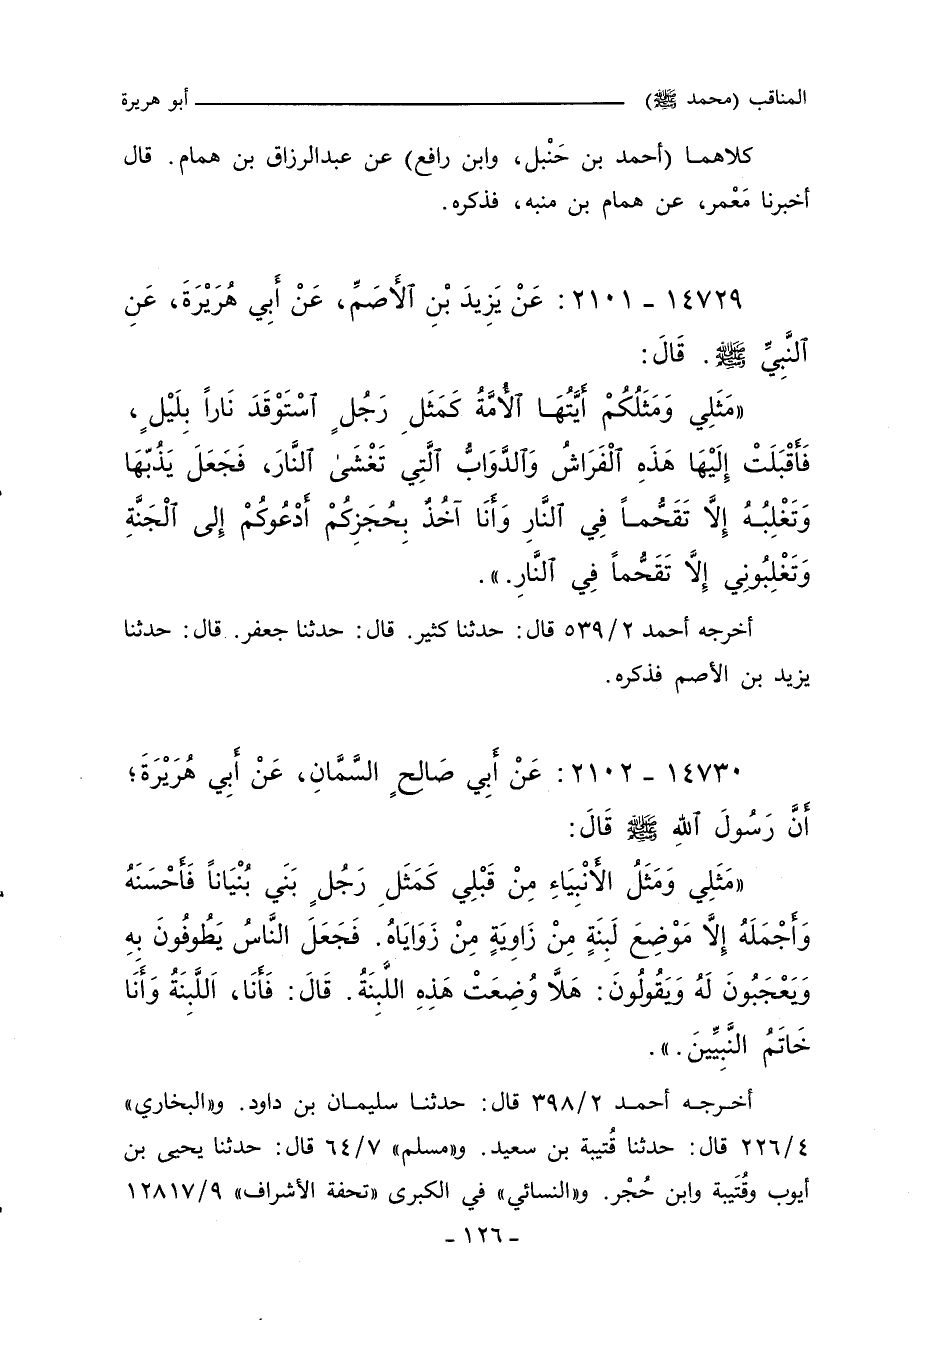 المناقب (محمد ﷺ) ــــــــــــــــ أبو هريرة
كلاهمـا (أحمد بن حَنْبل، وابن رافع) عن عبدالرزاق بن همام. قال
أخبرنا مَعْمر، عن همام بن منبه، فذكره.
١٤٧٢٩ - ٢١٠١: عَنْ يَزِيدَ بْنِ ٱلأَصَمِّ، عَنْ أَبِي هُرَيْرَةَ، عَنِ
ٱلنَّبِيِّ ﷺ. قَالَ:
«مَثَلِي وَمَثَلُكُمْ أَيَّتُهَـا ٱلأُمَّةُ كَمَثَلِ رَجُلٍ ٱسْتَوْقَدَ نَاراً بِلَيْلٍ،
فَأَقْبَلَتْ إِلَيْهَا هَذِهِ ٱلْفَرَاشُ وَٱلدَّوَابُّ ٱلَّتِي تَغْشَىٰ ٱلنَّارَ، فَجَعَلَ يَذُبُّهَا
وَتَغْلِبُـهُ إِلَّا تَقَحُّمـاً فِي ٱلنَّارِ وَأَنَا آخُذٌ بِحُجَزِكُمْ أَدْعُوكُمْ إِلى ٱلْجَنَّةِ
وَتَغْلِبُونِي إِلَّا تَقَحُّماً فِي ٱلنَّارِ.».
أخرجه أحمد ٥٣٩/٢ قال: حدثنا كثير. قال: حدثنا جعفر. قال: حدثنا
يزيد بن الأصم فذكره.
١٤٧٣٠ - ٢١٠٢: عَنْ أَبِي صَالِحٍ السَّمَّانِ، عَنْ أَبِي هُرَيْرَةَ؛
أَنَّ رَسُولَ ٱللهِ ﷺ قَالَ:
«مَثَلِي وَمَثَلُ الأَنْبِيَاءِ مِنْ قَبْلِي كَمَثَلِ رَجُلٍ بَنَي بُنْيَاناً فَأَحْسَنَهُ
وَأَجْمَلَهُ إِلَّا مَوْضِعَ لَبِنَةٍ مِنْ زَاوِيَةٍ مِنْ زَوَايَاهُ. فَجَعَلَ النَّاسُ يَطُوفُونَ بِهِ
وَيَعْجَبُونَ لَهُ وَيَقُولُونَ: هَلَّا وُضِعَتْ هَذِهِ اللَّبِنَةُ. قَالَ: فَأَنَا، اَللَّبِنَةُ وَأَنَا
خَاتَمُ النَّبِيِّينَ.».
أخـرجـه أحمـد ٣٩٨/٢ قال: حدثنـا سليمـان بن داود. و«البخاري»
٢٢٦/٤ قال: حدثنا قُتيبة بن سعيد. و«مسلم» ٦٤/٧ قال: حدثنا يحيى بن
أيوب وقُتَيبة وابن حُجْر. و«النسائي» في الكبرى «تحفة الأشراف» ١٢٨١٧/٩
- ١٢٦ -